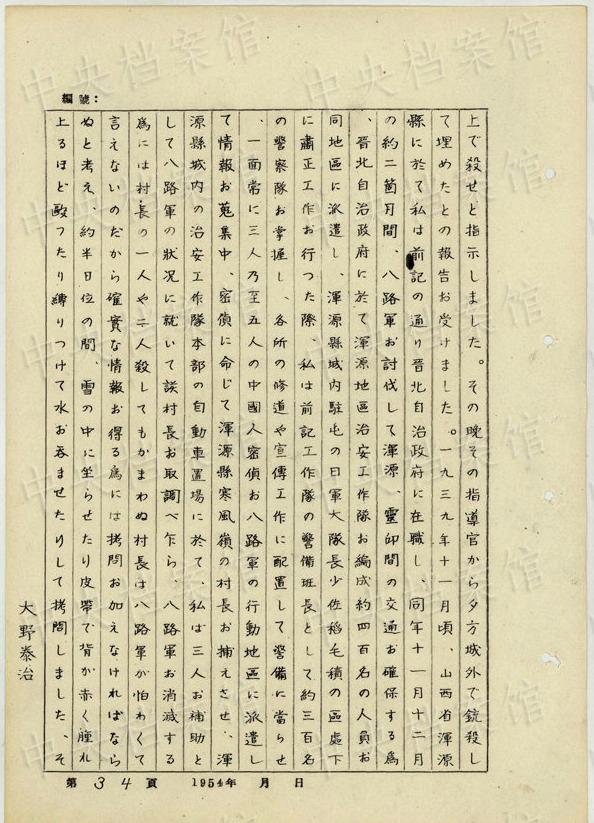 編號：
上で殺せと指示しました。その晩その指導官から夕方城外で銃殺し
て埋めたとの報告お受けました。一九三九年十一月頃、山西省渾源
縣に於て私は前記の通り晋北自治政府に在職し、同年十一月十二月
の約二箇月間、八路軍お討伐して渾源、靈邱間の交通お確保する為
、晋北自治政府に於て渾源地區治安工作隊お編成約四百名の人員お
同地區に派遣し、渾源縣城内駐屯の日軍大隊長少佐稻毛積の區處下
に肅正工作お行つた際、私は前記工作隊の警備班長として約三百名
の警察隊お掌握し、各所の修道や宣傳工作に配置して警備に當らせ
、一面常に三人乃至五人の中國人密偵お八路軍の行動地區に派遣し
て情報お蒐集中、密偵に命じて渾源縣寒風嶺の村長お捕えさせ、渾
源縣城内の治安工作隊本部の自動車置場に於て、私は三人お補助と
して八路軍の狀況に就いて該村長お取調べ乍ら、八路軍お消滅する
為には村長の一人や二人殺してもかまわぬ村長は八路軍が怕わくて
言えないのだから確實な情報お得る為には拷問お加えなければなら
ぬと考え、約半日位の間、雪の中に坐らせたり皮帶で背が赤く腫れ
上るほど毆つたり縛りつけて水お呑ませたりして拷問しました、そ
大野泰治
第 34 頁 1954年 月 日
中央档案馆